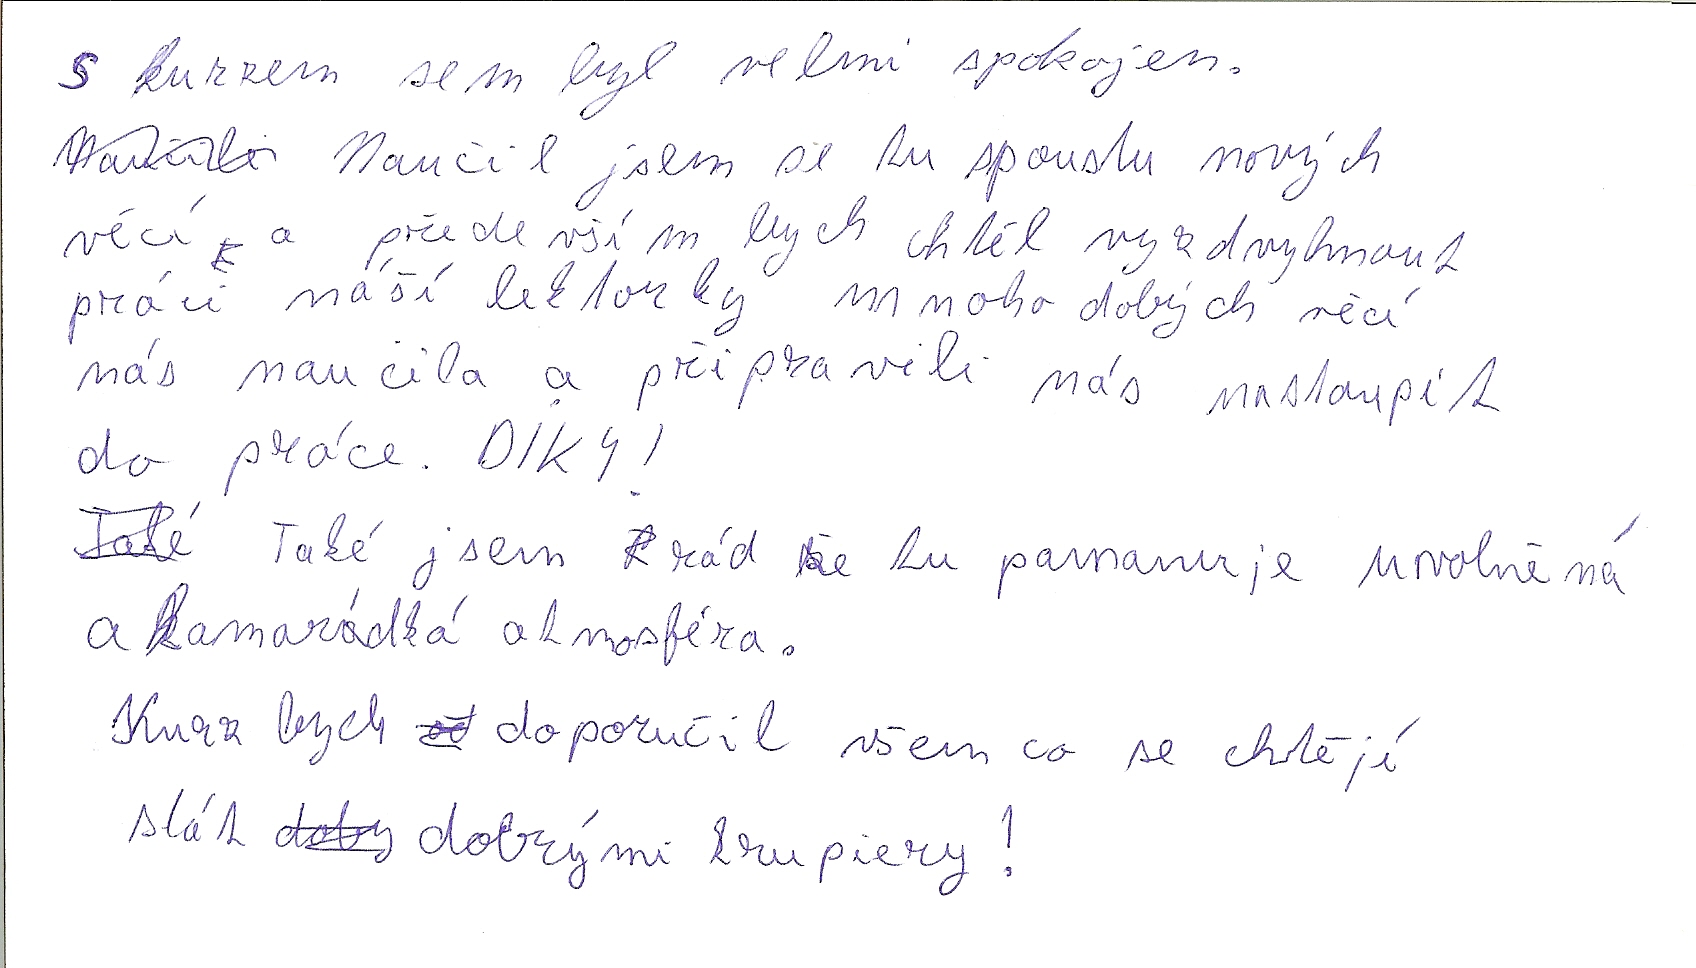 S kurzem sem byl velmi spokojen.
Naučil jsem se tu spoustu nových
věcí a především bych chtěl vyzdvyhnout
práci náší lektorky mnoho dobrých věcí
nás naučila a připravili nás nastoupit
do práce. DIKY!
Také jsem rád že tu pamanuje uvolněná
a kamarádká atmosféra.
Kurz bych doporučil všem co se chtějí
stát dobrými krupiery!